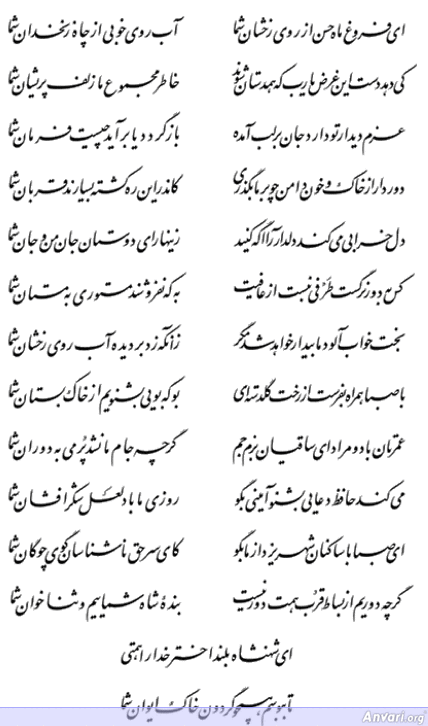 ای فروغ ماه حسن از روی رخشان شما آب روی خوبی از چاه زنخدان شما
کی دهد دست این غرض یا رب که همدستان شوند خاطر مجموع ما زلف پریشان شما
عزم دیدار تو دارد جان بر لب آمده بازگردد یا برآید چیست فرمان شما
دور دار از خاک و خون دامن چو بر ما بگذری کاندر این ره کشته بسیارند قربان شما
دل خرابی می‌کند دلدار را آگه کنید زینهار ای دوستان جان من و جان شما
کس به دور نرگست طرفی نبست از عافیت به که نفروشند مستوری به مستان شما
بخت خواب آلود ما بیدار خواهد شد مگر زانکه زد بر دیده آب روی رخشان شما
با صبا همراه بفرست از رخت گلدسته‌ای بو که بویی بشنویم از خاک بستان شما
عمرتان باد و مراد ای ساقیان بزم جم گرچه جام ما نشد پر می به دوران شما
می‌کند حافظ دعایی بشنو آمینی بگو روزی ما باد لعل شکرافشان شما
ای صبا با ساکنان شهر یزد از ما بگو کای سر حق ناشناسان گوی چوگان شما
گرچه دوریم از بساط قرب همت دور نیست بندهٔ شاه شماییم و ثناخوان شما
ای شهنشاه بلند اختر خدا را همتی
تا ببوسم همچو گردون خاک ایوان شما
Anvari.org